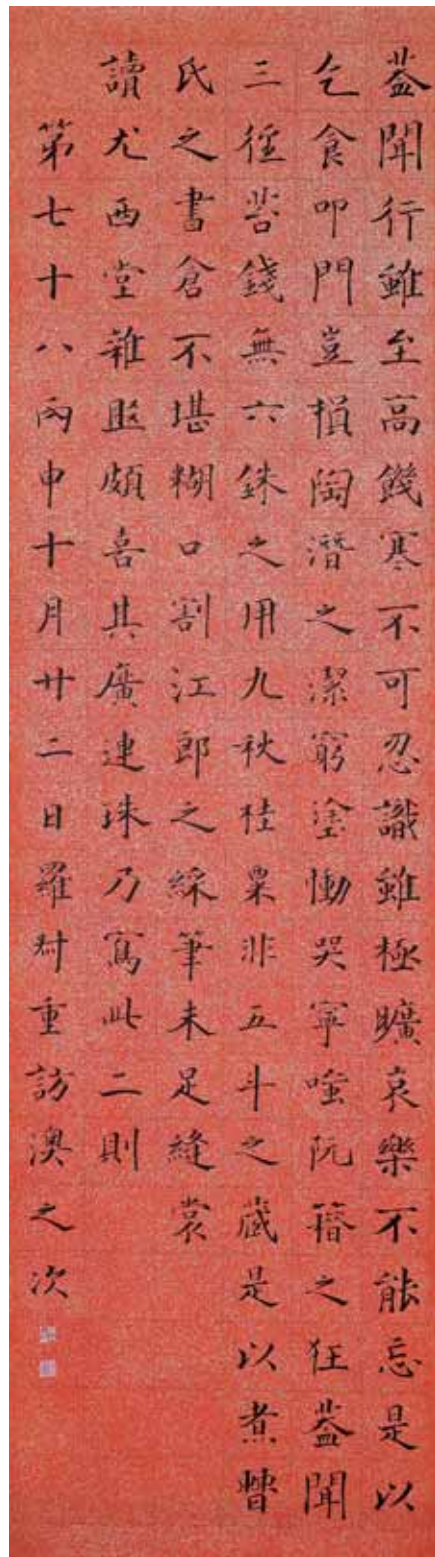 葢聞行雖至高饑寒不可忍識雖極曠哀樂不能忘是以
乞食叩門豈損陶潛之潔窮塗慟哭寧嗤阮籍之狂葢聞
三徑苔錢無六銖之用九秋桂粟非五斗之藏是以煮曹
氏之書倉不堪糊口割江郎之綵筆未足縫裳
讀尤西堂雜俎頗喜其廣連珠乃寫此二則
第七十八丙申十月廿二日羅尌重訪澳之次